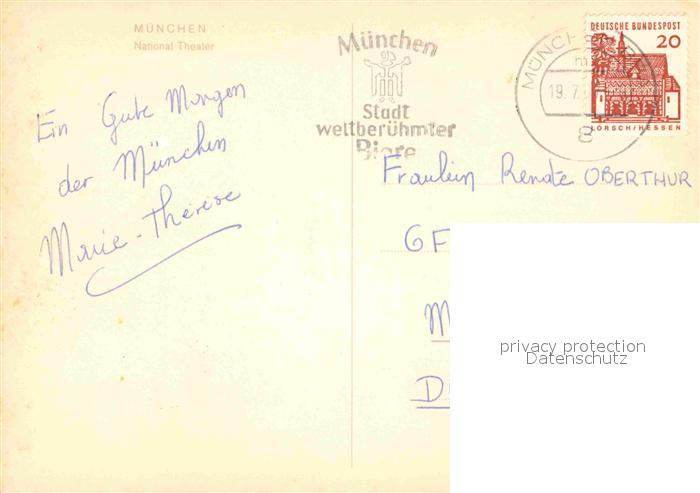 MÜNCHEN
National Theater
Ein Gute Morgen
der München
Marie-Thérèse
München
Stadt
weltberühmter
Biere
MÜNCH
19. 7.
8
DEUTSCHE BUNDESPOST
20
LORSCH/HESSEN
Fraulein Renate OBERTHUR
GF
M
D
privacy protection
Datenschutz